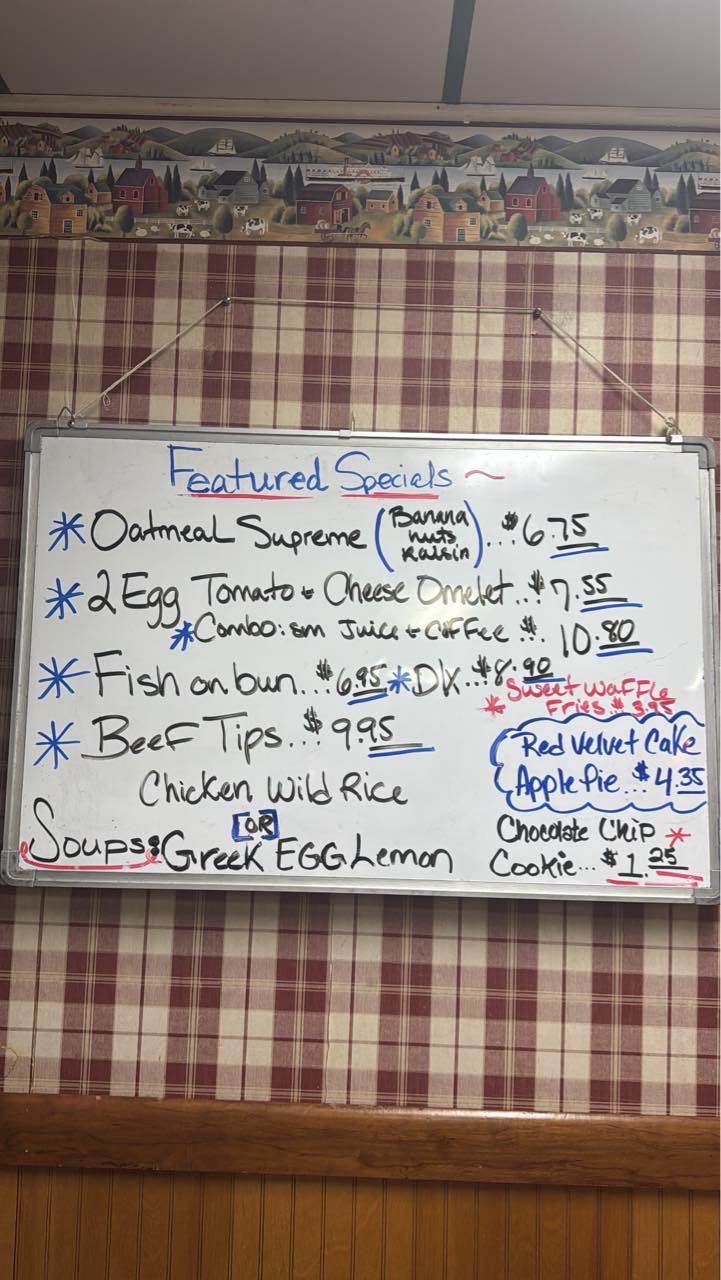 Featured Specials ~
* Oatmeal Supreme (Banana nuts Raisin)...$6.75
* 2 Egg Tomato + Cheese Omelet..$7.55
* Combo: sm Juice + Coffee $. 10.80
* Fish on bun...$6.95 * DX..$8.90
* Sweet Waffle
Fries.$3.95
* Beef Tips...$9.95
Red Velvet Cake
Apple Pie...$4.35
Chicken Wild Rice
OR
Soups: Greek EGG Lemon
Chocolate Chip *
Cookie...$1.25